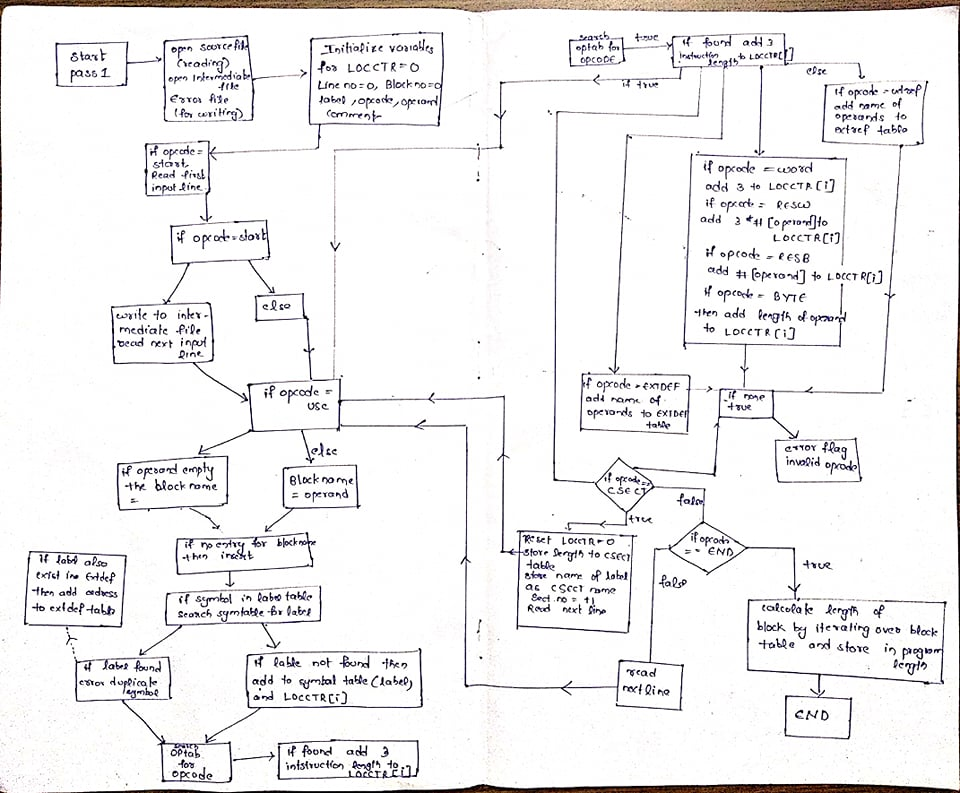 Start
pass 1
open source file
(reading)
open Intermediate
file
Error file
(for writing)
Initialize variables
for LOCCTR=0
Line no=0, Block no=0
label, opcode, operand
comment
if opcode=
start
Read first
input line.
if opcode=start
write to inter-
mediate file
read next input
line
else
if opcode =
use
else
if operand empty
the block name
=
Block name
= operand
if no entry for blockname
then insert
if symbol in label table
search symtable for label
If label also
exist in Extdef
then add address
to extdef table
if label found
error duplicate
symbol
If lable not found then
add to symbol table (label)
and LOCCTR[i]
search
OPtab
for
opcode
if found add 3
intstruction length to
LOCCTR[i]
search
optab for
OPCODE
true
If found add 3
instruction to LOCCTR[i]
length
if true
else
if opcode =
add name of
operands to
extref table
if opcode = word
add 3 to LOCCTR[i]
if opcode = RESW
add 3 *# [operand] to
LOCCTR[i]
if opcode = RESB
add # [operand] to LOCCTR[i]
If opcode = BYTE
then add length of operand
to LOCCTR[i]
if opcode = EXTDEF
add name of
operands to EXTDEF
table
if none
true
error flag
invalid opcode
if opcode==
CSECT
false
true
Reset LOCCTR=0
store length to CSECT
table
Store name of label
as CSECT name
Sect.no = +1
Read next line
if opcode
== END
false
true
calculate length of
block by iterating over block
table and store in program
length
read
next line
END